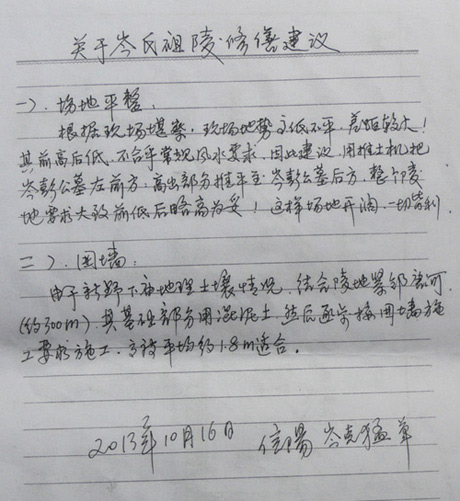 关于岑氏祖陵修缮建议
一）.场地平整：
根据现场堪察，现场地势高低不平，差距较大！
其前高后低，不合乎常规风水要求，因此建议，用推土机把
岑彭公墓左前方，高出部分推平至岑彭公墓后方，整个陵
地要求大致前低后略高为妥！这样场地开阔，一切皆利
二）.围墙：
由于新野下庙地理土壤情况，结合陵地紧邻河
（约300m），其基础部分用混泥土，然后逐步按围墙施
工要求施工，高设平均约1.8m适合。
2013年10月16日 信阳 岑克猛草